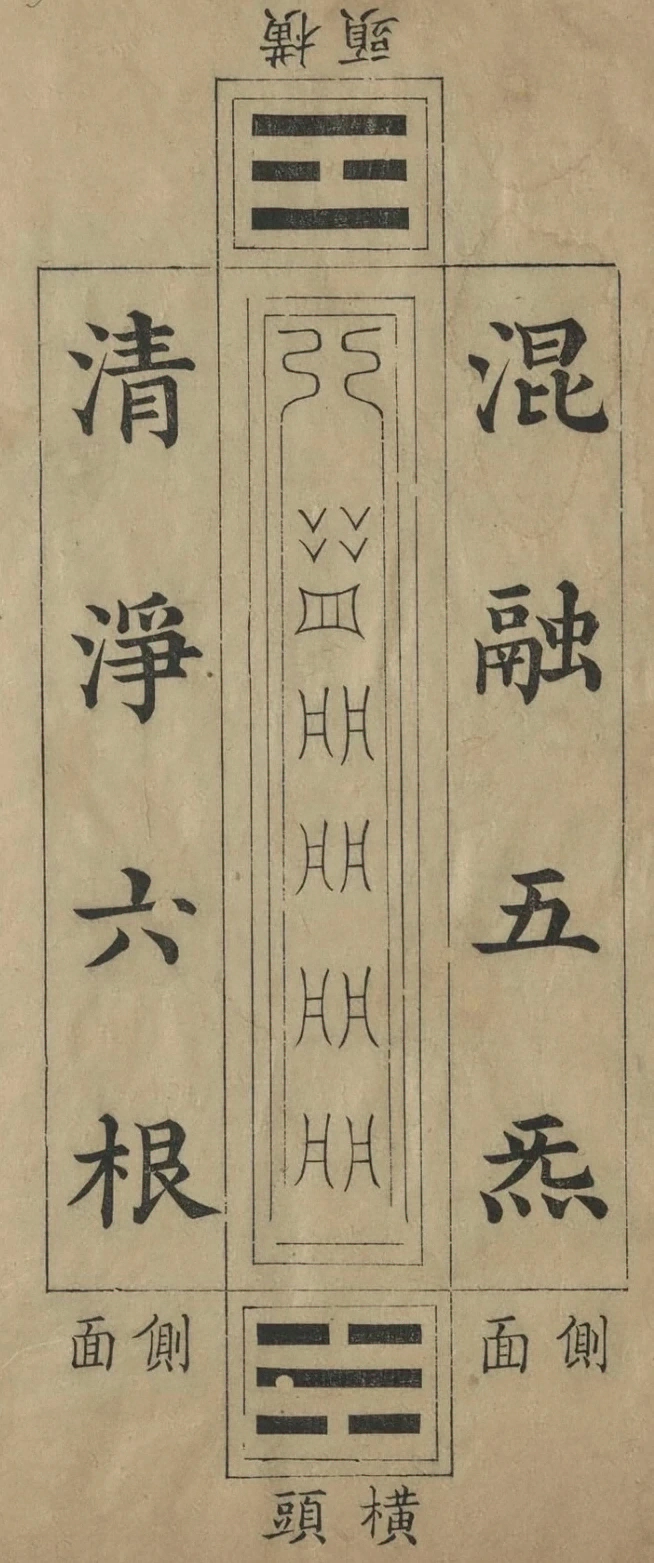 頭橫
混融五炁
清淨六根
側面
側面
橫頭